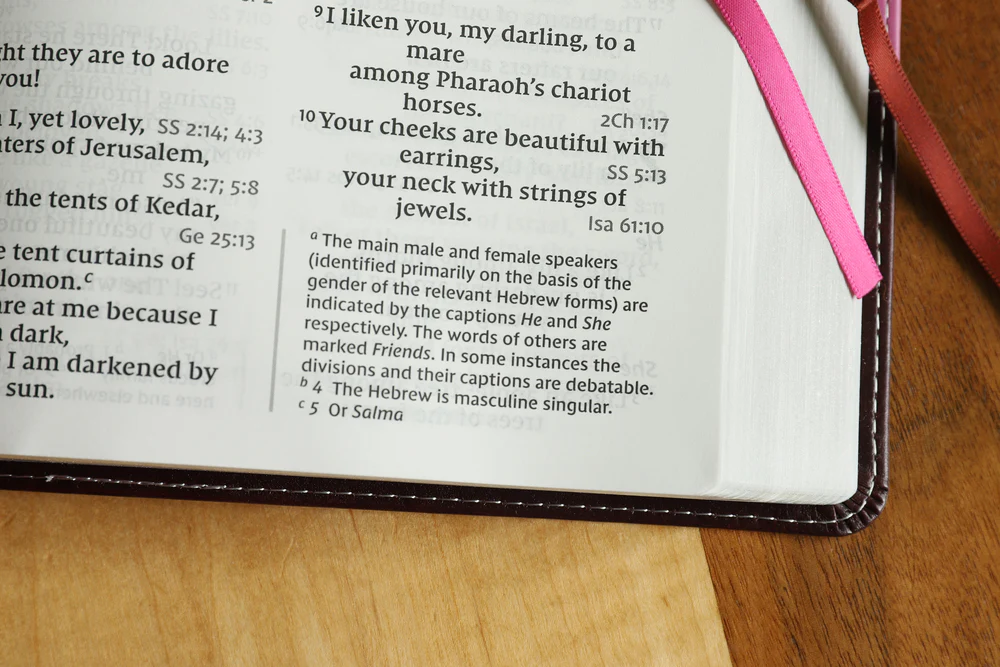 ght they are to adore
you!
I, yet lovely, SS 2:14; 4:3
ters of Jerusalem,
SS 2:7; 5:8
the tents of Kedar,
Ge 25:13
tent curtains of
lomon.c
are at me because I
dark,
I am darkened by
sun.
9 I liken you, my darling, to a
mare
among Pharaoh's chariot
horses. 2Ch 1:17
10 Your cheeks are beautiful with
earrings, SS 5:13
your neck with strings of
jewels. Isa 61:10
a The main male and female speakers
(identified primarily on the basis of the
gender of the relevant Hebrew forms) are
indicated by the captions He and She
respectively. The words of others are
marked Friends. In some instances the
divisions and their captions are debatable.
b 4 The Hebrew is masculine singular.
c 5 Or Salma